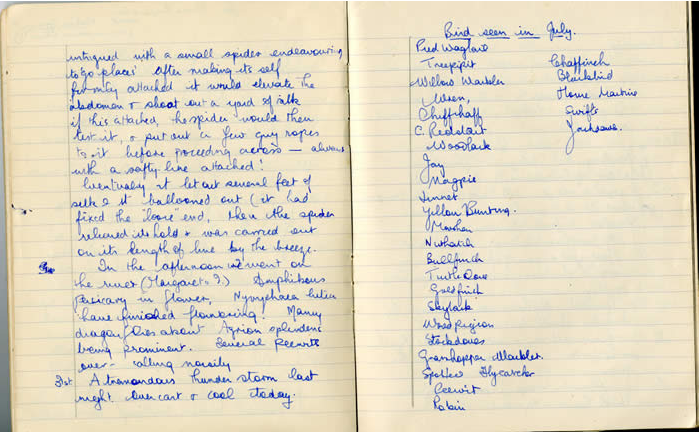 intrigued with a small spider endeavouring
to 'go places' after making its self
firmly attached it would elevate the
abdomen & shoot out a yard of silk
if this attached, the spider would then
test it, & put out a few guy ropes
to it before proceeding across — always
with a safty line attached!
Eventually it let out several feet of
silk & it ballooned out (it had
fixed the "loose" end, then the spider
released its hold & was carried out
on its length of line by the breeze.
In the afternoon we went on
the river (Margaret & I.) Amphibious
persicary in flower, Nymphaea
have finished flowering! Many
dragonflies about Agrion splendens
being prominent. Several Peewits
over - calling noisily
31st A tremendous thunder storm last
night. Overcast & cool today.
Bird seen in July.
Pied Wagtail
Treepipit
Willow Warbler
Wren,
Chiffchaff
C. Redstart
Woodlark
Jay
Magpie
Linnet
Yellow Bunting.
Nuthatch
Bullfinch
Turtle Dove
Goldfinch
Skylark
Wood Pigeon
Stockdoves
Grasshopper Warbler
Spotted Flycatcher
Peewit
Robin
Chaffinch
Blackbird
House Martins
Swifts
Jackdaws.